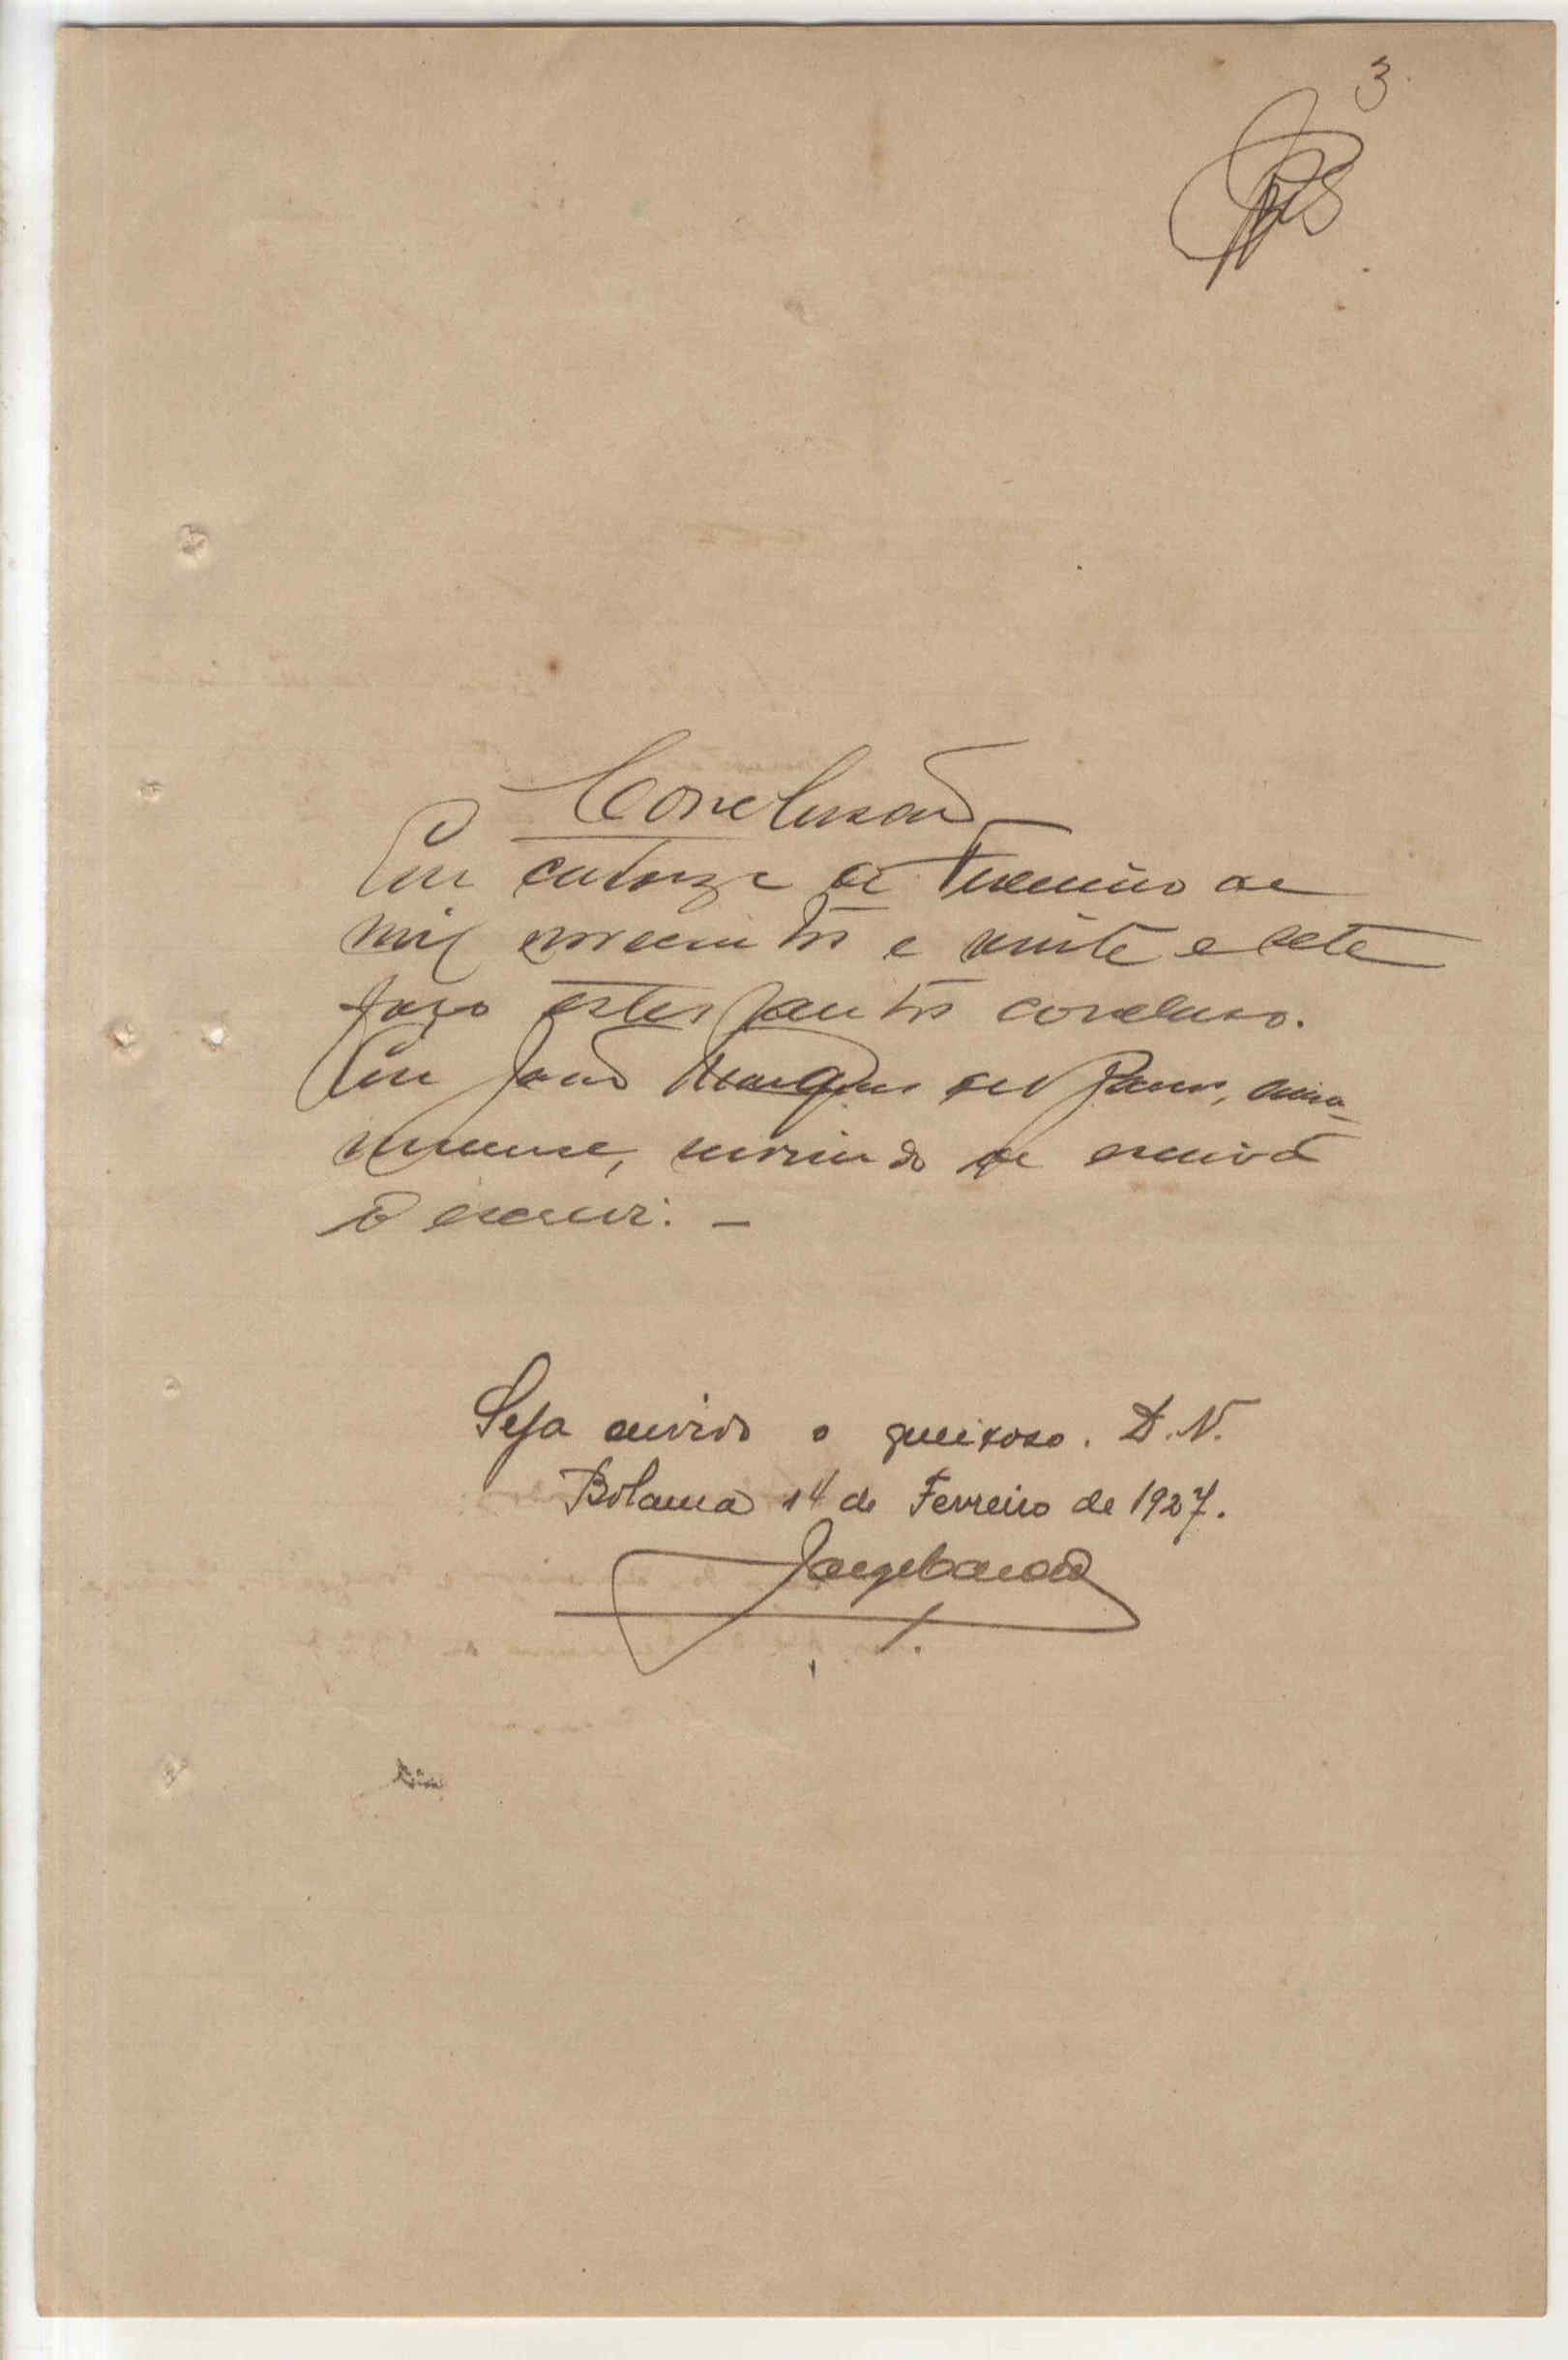 3
Conclusão
Em catorze de Fevereiro de
mil novecentos e vinte e sete
faço estes autos conclusos.
Eu João Marques de Barros, ama-
nuense, servindo de escrivão
o escrevi. —
Seja ouvido o queixoso. D. N.
Bolama 14 de Fevereiro de 1927.